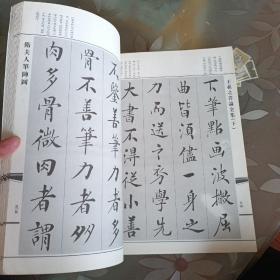 王羲之書論全集(下)
下筆點畫波撇屈
曲皆須儘一身之
力而送之初學先
大書不得從小善
不鑒善筆力者多
骨不善筆力者多
肉多骨微肉者謂
衛夫人筆陣圖